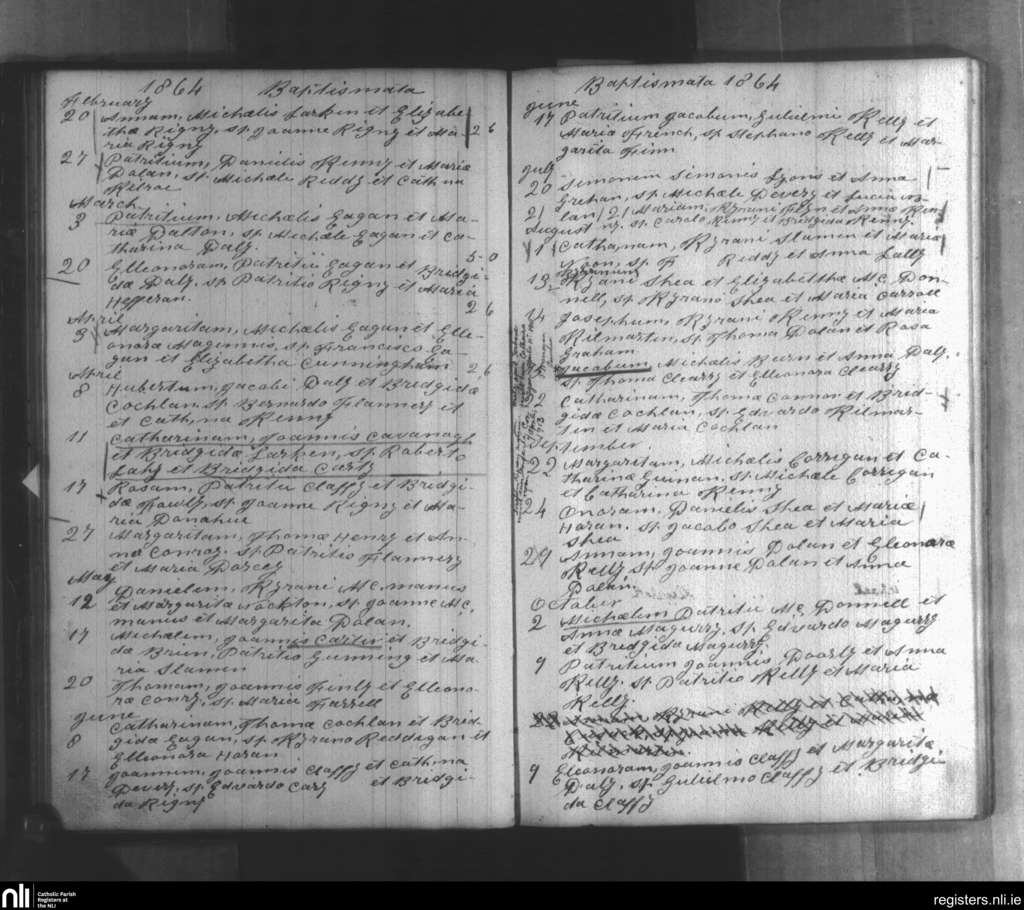 1864 Baptismata
February
20 Annam, Michælis Larken et Elizabe-
thæ Rigny, Sp. Joanne Rigny et Ma- 2 6
ria Rigny
27 Patritium, Danielis Kenny et Mariæ
Dolan, Sp. Michæle Reddy et Cath,na
Kilroe
March
3 Patritium, Michælis Eagan et Ma-
riæ Dalton, Sp. Michæle Eagan et Ca-
tharina Daly. 5-0
20 Elleonoram, Patritii Eagan et Bridgi-
dæ Daly. Sp. Patritio Rigny et Maria
Hefferan. 2 6
April
3 Margaritam, Michælis Eagan et Elle-
onoræ Maginnus, Sp. Francisco Ea-
gan et Elizabetha Cunningham 2 6
April
8 Hubertum, Jacobi Daly et Bridgidæ
Cochlan, Sp. Bernardo Flannery et
et Cath,na Kenny
11 Catharinam, Joannis Cavanagh
et Bridgidæ Larken, Sp. Roberto
Lahy et Bridgida Carty
17 Rosam, Patritii Claffy et Bridgi-
dæ Fowly, Sp. Joanne Rigny et Ma-
ria Donahue
27 Margaritam, Thomæ Henry et An-
næ Conroy. Sp. Patritio Flannery
et Maria Dorcey
May
12 Danielem, Kyrani Mc.manus
et Margaritæ Nockton, Sp. Joanne Mc.
manus et Margarita Dolan.
17 Michælem, Joannis Carter et Bridgi-
dæ Brien, Patritio Gunning et Ma-
ria Slamen
20 Thomam, Joannis Finly et Elleono-
ræ Conry, Sp. Maria Farrell
June
8 Catharinam, Thomæ Cochlan et Brid-
gida Eagan, Sp. Kyrano Reddigan et
Elleonora Horan
17 Joannum, Joannis Claffy et Cath,na
Devery, Sp. Edvardo Cary et Bridgi-
da Rigny
Baptismata 1864
June
17 Patritium Jacobum, Gulielmi Kelly et
Maria French, Sp Stephano Kelly et Mar-
garita Finn
July
20 Simonem Simonis Lyons et Anna
Grehan, Sp Michæle Devery et Lucia No-
lan
21 Mariam, Kyrani Flyn et Anna Ken
ny. Sp. Carolo Kenny et Bridgida Kenny.
August
1 Catha,nam, Kyrani Slamen et Mariæ
Noon, Sp. P Reddy et Anna Lally
13 Kyrani Shea et Elizabethæ Mc. Don-
nell, Sp Kyrano Shea et Maria Carroll
14 Josephum, Kyrani Kenny et Maria
Kilmarten, Sp. Thoma Dolan et Rosa
Graham
Jacobum Michælis Kurn et Anna Daly.
Sp. Thoma Cleary et Elleonora Cleary
Catharinam, Thomæ Connor et Brid-
gidæ Cochlan, Sp. Edvardo Kilmar-
ten et Maria Cochlan
September
22 Margaritam, Michælis Corrigan et Ca-
tharinæ Guinan, Sp. Michæle Corrigan
et Catharina Kenny
24 Onoram, Danielis Shea et Mariæ
Horan. Sp. Jacobo Shea et Maria
Shea
29 Annam, Joannis Dolan et Eleonoræ
Kelly Sp. Joanne Dolan et Anna
Dolan.
October
2 Michælem Patritii Mc. Donnell et
Annæ Magurry. Sp. Edvardo Magurry
et Bridgida Magurry.
9 Patritium Joannis, Doorly et Anna
Kelly. Sp. Patritio Kelly et Maria
Kelly.
9 Eleonoram, Joannis Claffy et Margarita
Daly, Sp. Gulielmo Claffy et Bridgi
da Claffy
nli
Catholic Parish
Registers at
the NLI
registers.nli.ie